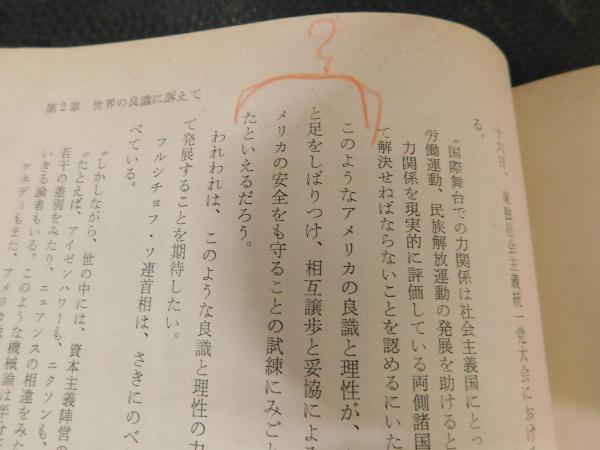 第2章 世界の良識に訴えて
十六日、東独社会主義統一党大会における
る。
“国際舞台での力関係は社会主義国にとっ
労働運動、民族解放運動の発展を助けると
力関係を現実的に評価している両側諸国
て解決せねばならないことを認めるにいた
このようなアメリカの良識と理性が、
と足をしばりつけ、相互譲歩と妥協による
メリカの安全をも守ることの試練にみごと
たといえるだろう。
われわれは、このような良識と理性の力
て発展することを期待したい。
フルシチョフ・ソ連首相は、さきにのべ
べている。
“しかしながら、世の中には、資本主義陣営の
“たとえば、アイゼンハワーも、ニクソンも、
若干の差別をみたり、ニュアンスの相違をみた
いきる論者もいる。このような機械論は半分
ケネディもまた、アメリカ